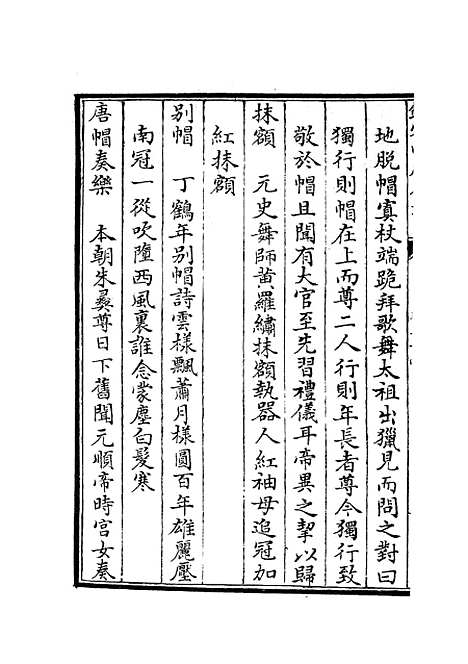 地脫帽寘杖端跪拜歌舞太祖出獵見而問之對曰
獨行則帽在上而尊二人行則年長者尊今獨行致
敬於帽且聞有大官至先習禮儀耳帝異之挈以歸
抹額　元史舞師黄羅繡抹額執器人紅袖母追冠加
紅抹額
别帽　丁鶴年别帽詩雲樣飄蕭月樣圓百年雄麗壓
南冠一從吹墮西風裏誰念蒙塵白髮寒
唐帽奏樂　本朝朱彞尊日下舊聞元順帝時宫女奏